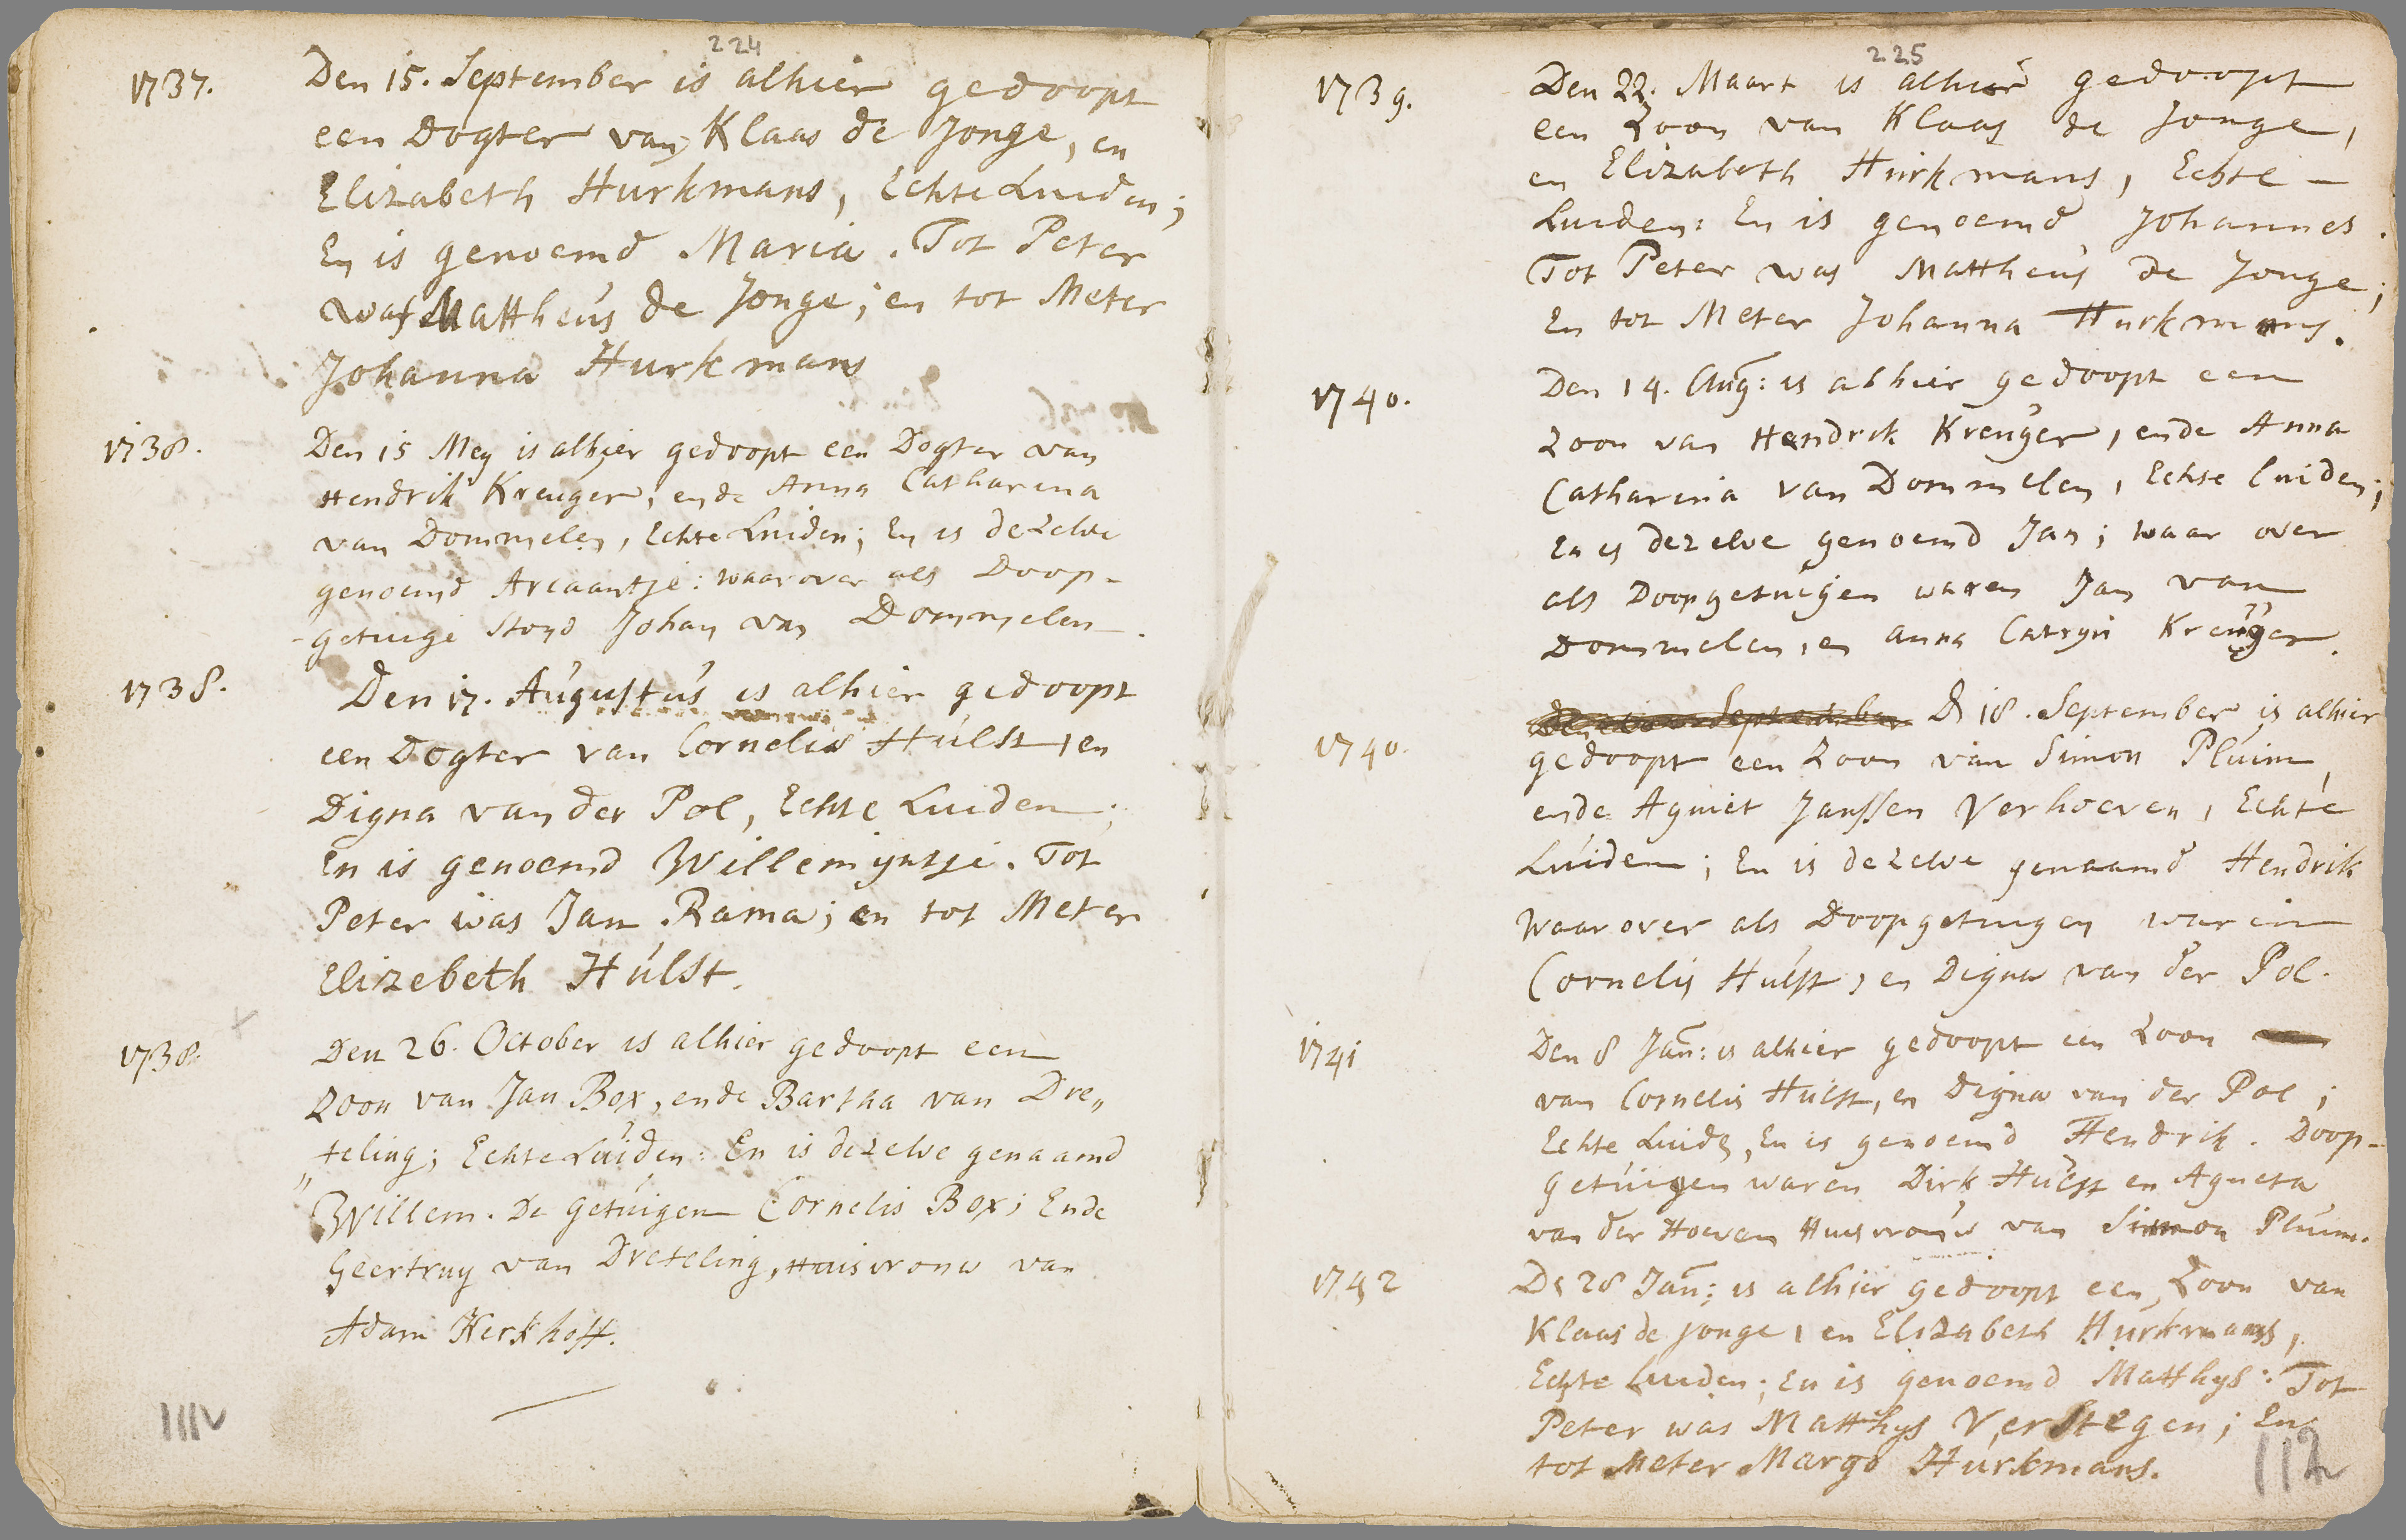 224
1737. Den 15. September is alhier gedoopt
een Dogter van Klaas de Jonge, en
Elizabeth Hurkmans, Echte Luiden;
En is genoemd Maria. Tot Peter
was Mattheus de Jonge; en tot Meter
Johanna Hurkmans
1738. Den 15 Mey is alhier gedoopt een Dogter van
Hendrik Kreuger, ende Anna Catharina
van Dommelen, Echte Luiden; En is dezelve
genoemd Ariaantje: waar over als Doop-
-getuige stond Johan van Dommelen.
1738. Den 17. Augustus is alhier gedoopt
een Dogter van Cornelis Hulst, en
Digna van der Pol, Echte Luiden;
En is genoemd Willemijntje. Tot
Peter was Jan Rama; en tot Meter
Elizebeth Hulst.
1738. Den 26. October is alhier gedoopt een
Zoon van Jan Box, ende Bartha van Dre„
„teling; Echte Luiden: En is dezelve genaamd
Willem. De Getuigen Cornelis Box; Ende
Geertruy van Dreteling, Huisvrouw van
Adam Kerkhoff.
111v
225
1739. Den 22. Maart is alhier gedoopt
een Zoon van Klaas de Jonge,
en Elizabeth Hurkmans, Echte -
Luiden: En is genoemd Johannes.
Tot Peter was Mattheus de Jonge;
En tot Meter Johanna Hurkmans.
1740. Den 14. Aug: is alhier gedoopt een
Zoon van Hendrik Kreuger, ende Anna
Catharina van Dommelen, Echte Luiden;
En is dezelve genoemd Jan; waar over
als Doopgetuigen waren Jan van
Dommelen, en Anna Catryn Kreuger.
September D 18. September is alhier
1740. gedoopt een Zoon van Simon Pluim,
ende Agniet Janssen Verhoeven, Echte
Luiden; En is dezelve genaamd Hendrik
Waar over als Doopgetuigen waren
Cornelis Hulst, en Digna van der Pol.
1741 Den 8 Jan: is alhier gedoopt een Zoon van
van Cornelis Hulst, en Digna van der Pol;
Echte Luide, En is genoemd Hendrik. Doop-
getuigen waren Dirk Hulst en Agneta
van der Hoeven Huisvrouw van Simon Pluim.
1742 De 28 Jan: is alhier gedoopt een Zoon van
Klaas de Jonge, en Elizabeth Hurkmans,
Echte Luiden; En is genoemd Matthys: Tot
Peter was Matthys Verstegen; En
tot Meter Margo Hurkmans.
112